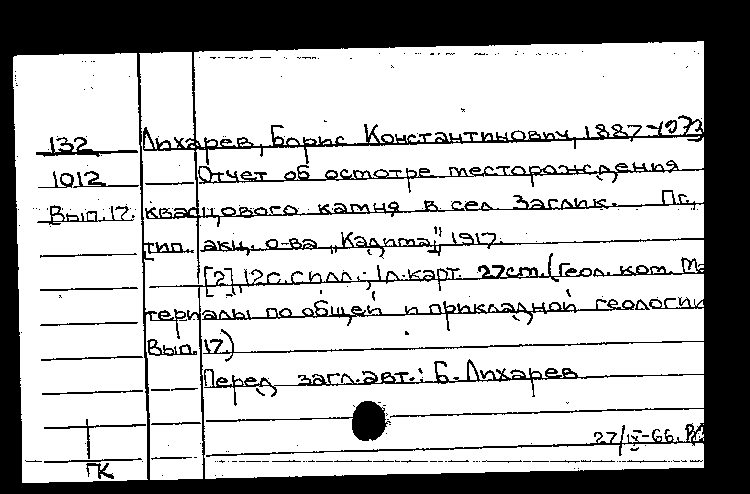 132 Лихарев, Борис Константинович, 1887-1973
1012 Отчет об осмотре месторождения
Вып.17. квасцового камня в сел. Заглик. Пг.,
тип. акц. о-ва "Кадима", 1917.
[2], 12с. с илл.; 1л. карт. 27см. (Геол. ком. Ма-
териалы по общей и прикладной геологии
Вып. 17.)
Перед загл. авт.: Б. Лихарев
27/IX-66.
ГК